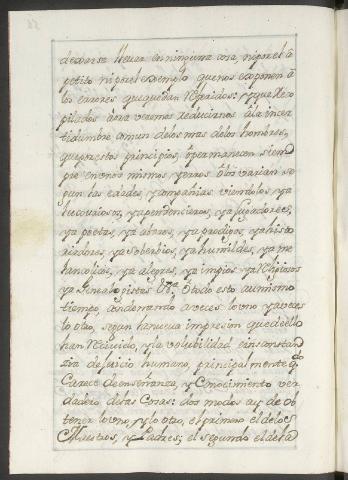 dexarse llevar en ninguna cosa, ni por el a
petito ni por el exemplo que nos exponen â
los errores que quedan Referidos: y que Reco
pilados aora veremos reducirnos â la incer
tidumbre comun de los mas de los hombres,
que por estos principios, ô permanecen siem
pre en unos mismos yerros ô los varian se
gun las edades, y compañias viendolos ya
luxuriosos, ya pendencieros, ya Jugadores,
ya poetas, ya abaros, ya prodigos, ya histo
riadores, ya soberbios, ya humildes, ya me
hancolicos, ya alegres, ya impios ya Religiosos
ya Genealogistas &ra. O todo esto a un mismo
tiempo, condenando a veces lo uno y a veces
lo otro, segun la nueva impresion que de ello
han Recivido, y la volubilidad e inconstan
zia de Juicio humano, principalmente qdo
Carece de enseñanza, y Conocimiento ver
dadero de las Cosas: dos modos ay de Ob
tener lo uno, y lo otro, el primero el de los
Maestros, y Padres; el segundo el de la